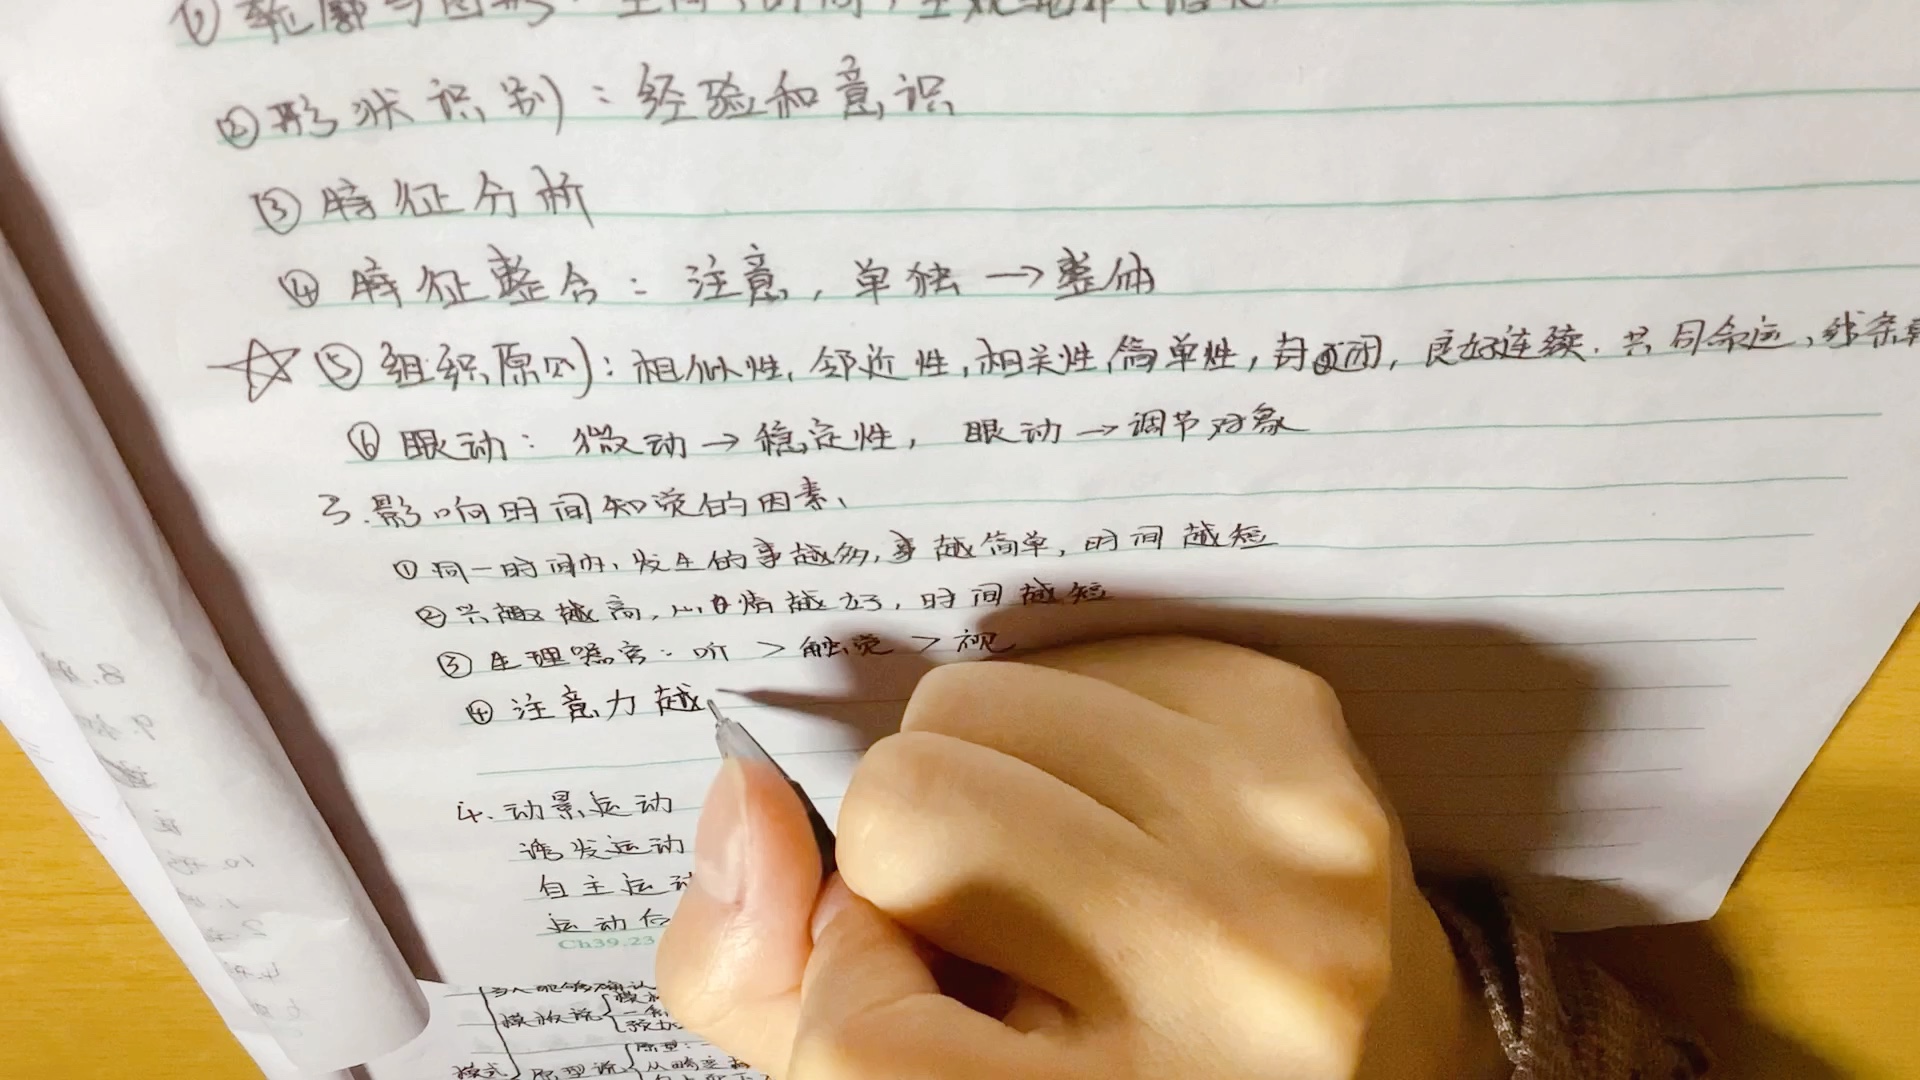 ① 轮廓与图形：空间，时间，主观轮廓（错觉）
② 形状识别：经验和意识
③ 特征分析
④ 特征整合：注意，单独→整体
☆ ⑤ 组织原则：相似性，邻近性，相关性，简单性，封闭，良好连续，共同命运，线条
⑥ 眼动：微动→稳定性，眼动→调节对象
3.影响时间知觉的因素、
① 同一时间内，发生的事越多，事越简单，时间越短
② 兴趣越高，心情越好，时间越短
③ 生理器官：听＞触觉＞视
④ 注意力越
4.动景运动
诱发运动
自主运动
运动后
Ch39.23
模板说
原型：
模式 原型说